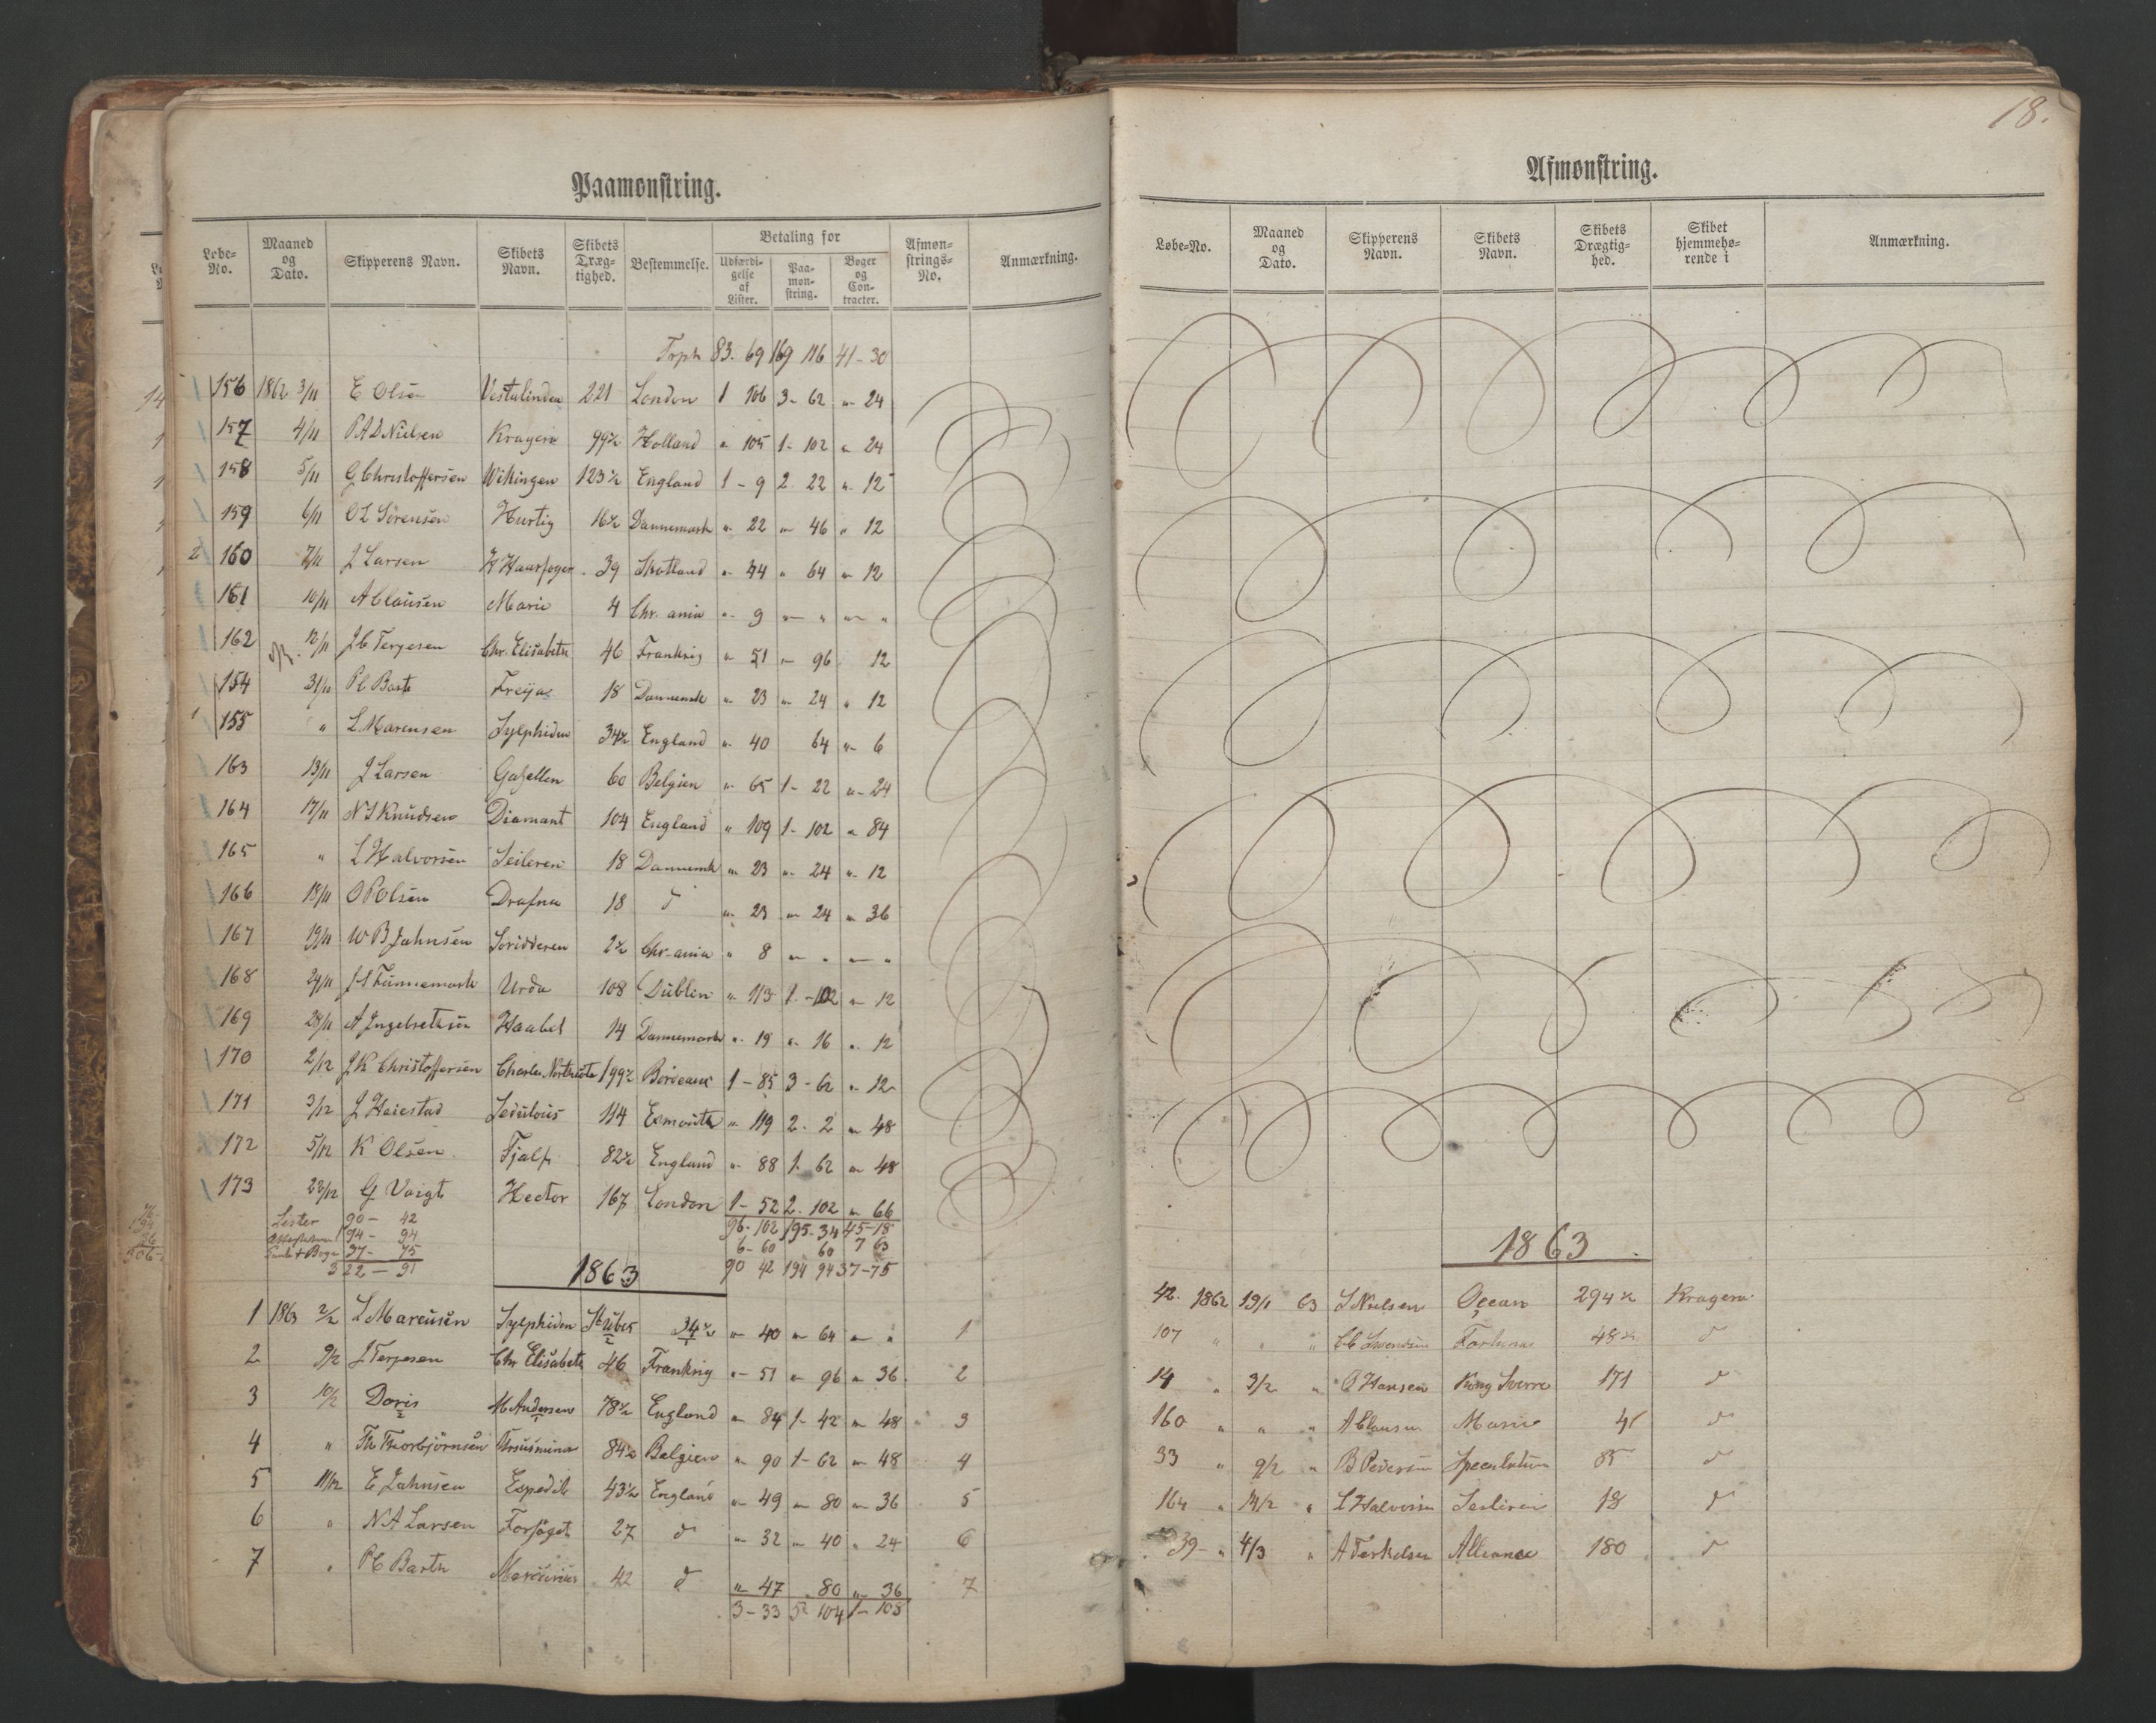 18.
Paamønstring.
Løbe-No. Maaned og Dato. Skipperens Navn. Skibets Navn. Skibets Dræg-tighed. Bestemmelse. Betaling for Udfærdi-gelse af Lister. Paa-møn-string. Bøger og Con-tracter. Afmøn-strings-No. Anmærkning.
83. 69 169 116 41-30
156 1862 3/11 E Olsen Vestalinden 221 London 1 106 3- 62 " 24
157 4/11 P.A.D Nielsen Kragerø 99½ Holland " 105 1- 102 " 24
158 5/11 G Christoffersen Wikingen 123½ England 1 - 9 2. 22 " 12
159 6/11 O L Sørensen Hurtig 16½ Dannemark " 22 " 46 " 12
2 160 7/11 J Larsen H Haarfager 39 Skotland " 44 " 64 " 12
161 10/11 A Clausen Marie 4 Chr. ania " 9 " " " "
162 12/11 J C Terjesen Chr. Elisabeth 46 Frankrig " 51 " 96 12
154 31/10 P C Barth Freija 18 Dannemk " 23 " 24 " 12
155 " L Marcusen Sylphiden 34½ England " 40 64 " 6
163 13/11 J Larsen Gasellen 60 Belgien " 65 1- 22 " 24
164 17/11 N S Knudsen Diamant 104 England " 109 1- 102 " 84
165 " L Halvorsen Seileren 18 Dannemk " 23 " 24 " 12
166 18/11 O P Olsen Drafna 18 d " 23 " 24 " 36
167 19/11 W B Jahnsen 2½ Chr-ania " 8 " " " "
168 24/11 Urda 108 Dublin " 113 1.-102 " 12
169 28/11 A Ingebrethsen Haabet 14 Dannemark " 19 " 16 " 12
170 2/12 J K Christoffersen Charles 199½ Bordeaux 1-85 3-62 " 12
171 3/12 J Heiestad Sedulous 114 Exmouth " 119 2. 2 " 48
172 5/12 K Olsen Fjalf 82½ England " 88 1. 62 " 48
173 22/12 G Voigt Hector 167 London 1- 52 2. 102 " 66
Lister 90- 42 96-102 195-34 45-18
194- 94 6-60 60 7 63
37- 75 90 42 194 94 37-75
322 - 91
1863
1 1863 2/2 L Marcusen Sylphiden 34½ " 40 " 64 " " 1
2 9/2 J Terjesen Chr Elisabeth 46 Frankrig " 51 " 96 " 36 2
3 10/2 Doris M Andersen 78½ England " 84 1- 42 " 48 3
4 " Th Thorbjörnsen Ursusminor 84½ Belgien " 90 1- 62 " 48 4
5 11/2 E Jahnsen Expedit 43½ England " 49 " 80 " 36 5
6 " N A Larsen Forsøget 27 d " 32 " 40 " 24 6
7 " P C Barth Mercurius 42 d " 47 " 80 " 36 7
3-33 5 104 1- 108
Afmønstring.
Løbe-No. Maaned og Dato. Skipperens Navn. Skibets Navn. Skibets Drægtig-hed. Skibet hjemmehø-rende i Anmærkning.
1863
42. 1862 19/1 63 S Nielsen Ocean 294½ Kragerø
107 " " " Svendsen Fortuna 48½ d
14 " 3/2 " O Hansen Kong Sverre 171 d
160 " " " A Clausen Marie 4 d
33 " 9/2 " B Pedersen Speculation 85 d
164 " 14/2 " L Halvorsen Seileren 18 d
39- " 4/3 " A Terkelsen Alliance 180 d